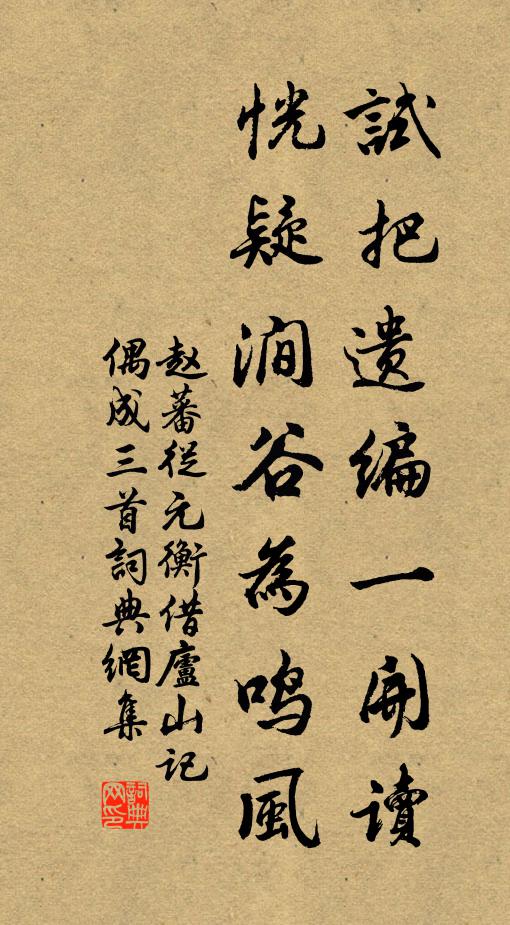 試把遺編一開讀
恍疑澗谷為鳴風
趙蕃從元衡借廬山記
偶成三首詞典網集
詞典网印